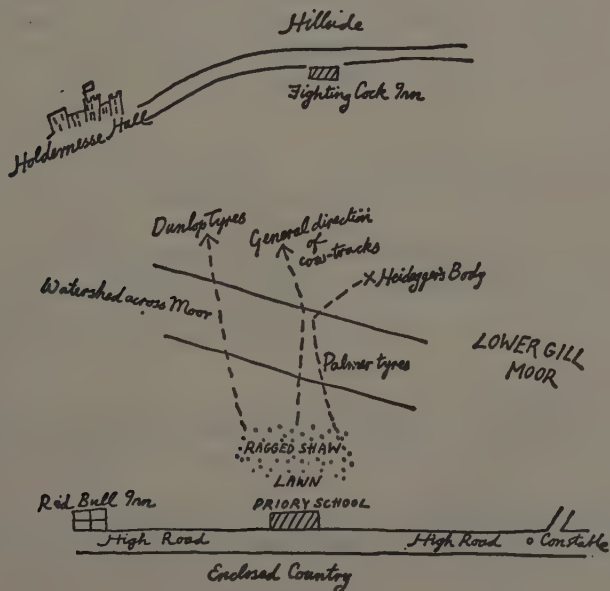 Hillside
Fighting Cock Inn
Holdernesse Hall
Dunlop Tyres
General direction
of
cow-tracks
X Heidegger's Body
Watershed across Moor
LOWER GILL
MOOR
Palmer tyres
RAGGED SHAW
LAWN
PRIORY SCHOOL
Red Bull Inn
High Road
High Road
Constable
Enclosed Country